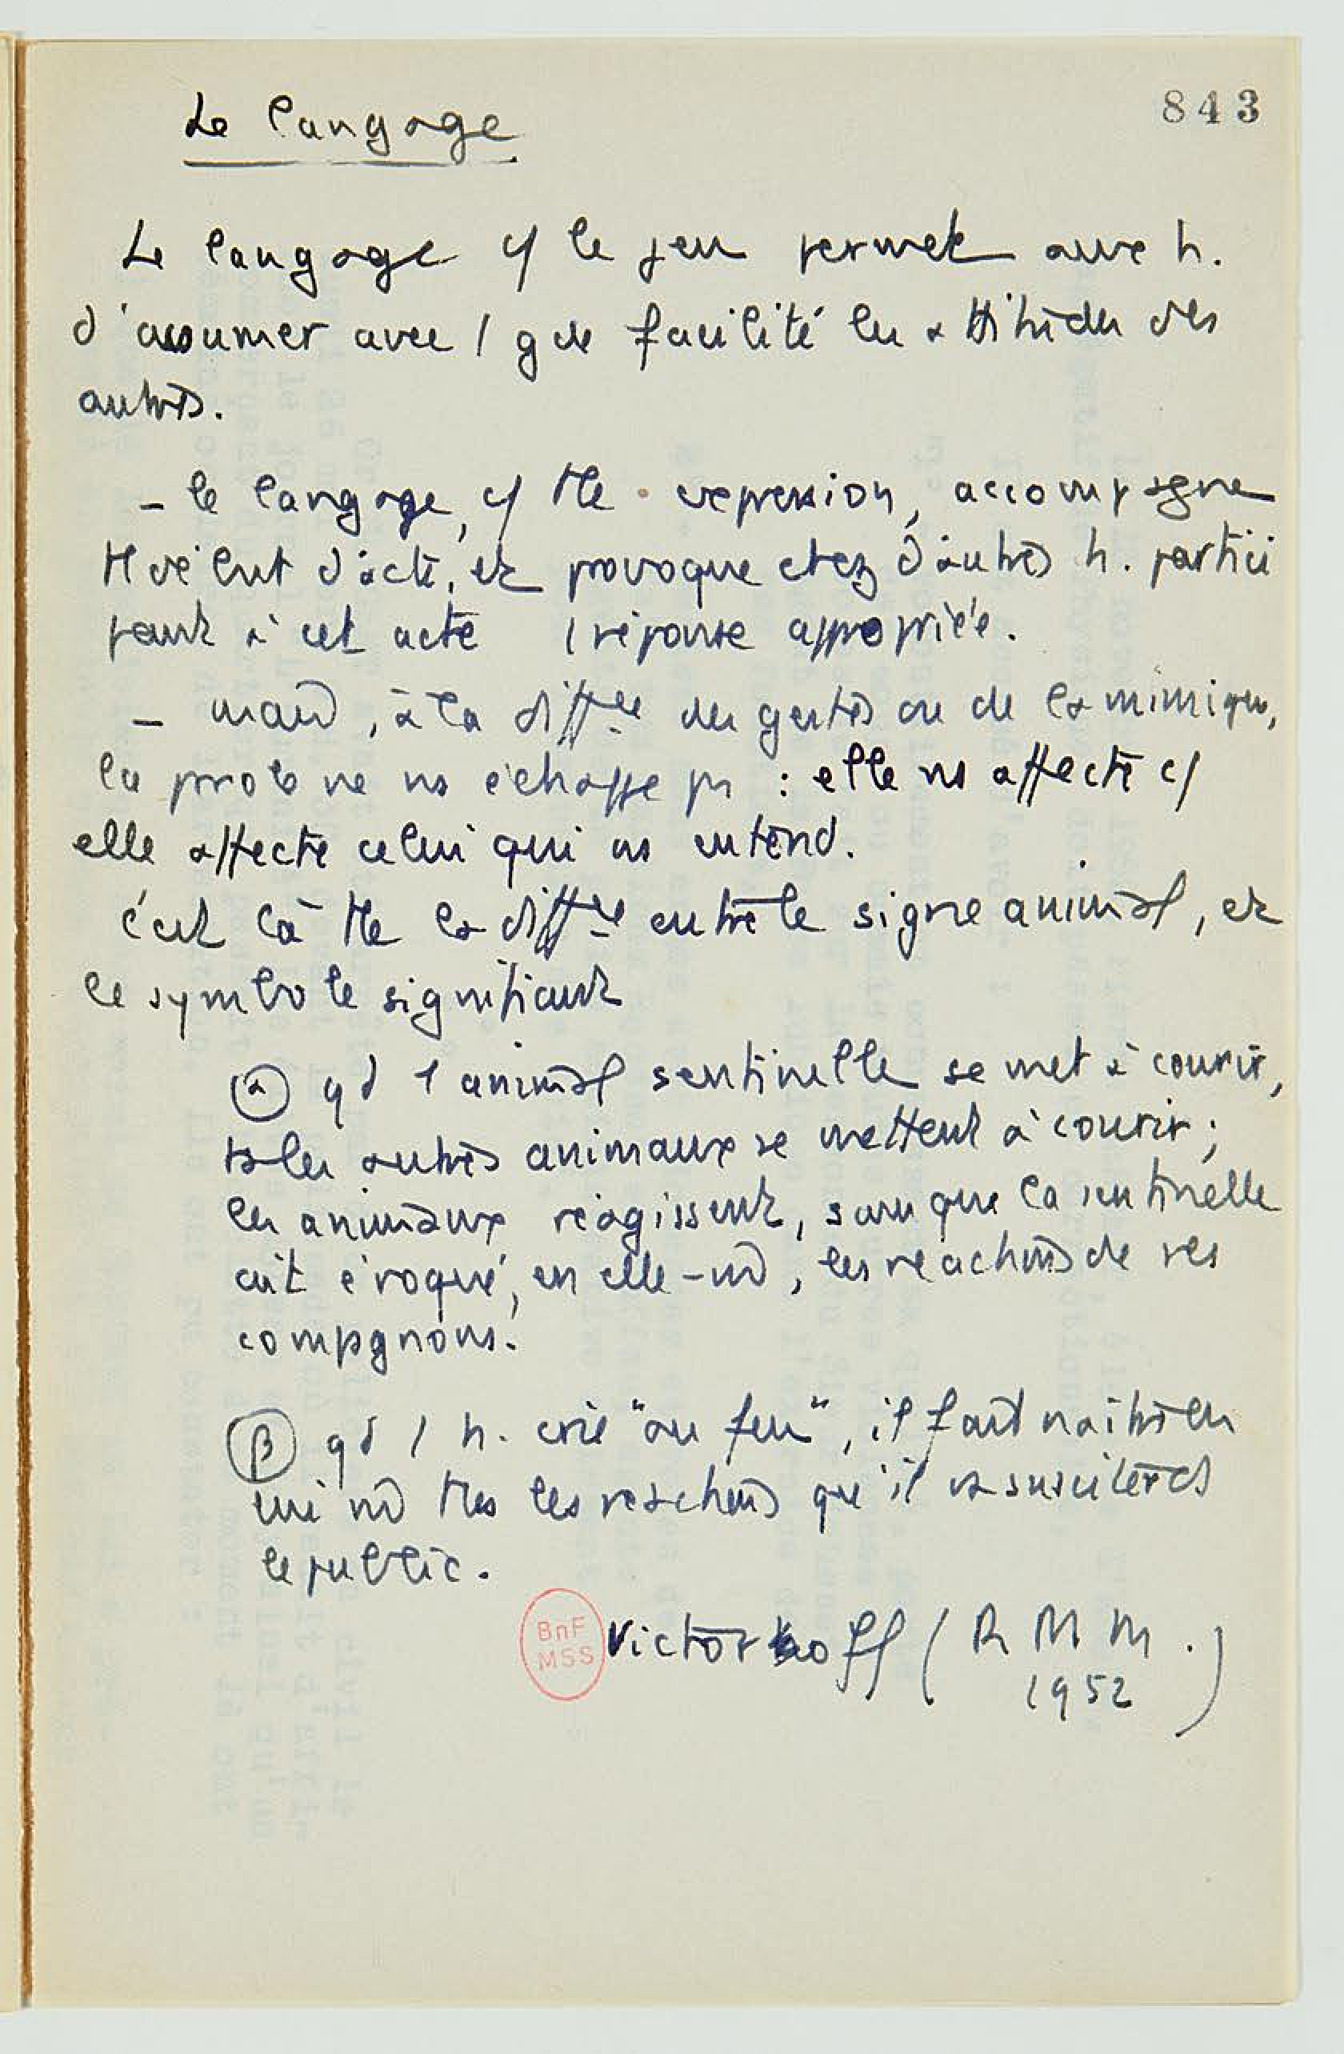 843
Le langage
Le langage c/ le jeu permet aux h.
d'assumer avec 1 gde facilité les attitudes des
autres.
- le langage, c/ tte expression, accompagne
tt début d'acte, et provoque chez d'autres h. partici
pant à cet acte 1 réponse appropriée.
- mais, à la diffce des gestes ou de la mimique,
la parole ne ns échappe pas : elle ns affecte c/
elle affecte celui qui ns entend.
c'est là tte la diffce entre le signe animal, et
le symbole significant
(α) qd l'animal sentinelle se met à courir,
ts les autres animaux se mettent à courir ;
les animaux réagissent, sans que la sentinelle
ait évoqué, en elle-m̂, les réactions de ses
compagnons.
(β) qd 1 h. crie "au feu", il fait naître en
lui m̂ ttes les réactions qu'il va susciter ds
le public.
BnF
MSS
Victoroff (R M M.
1952)